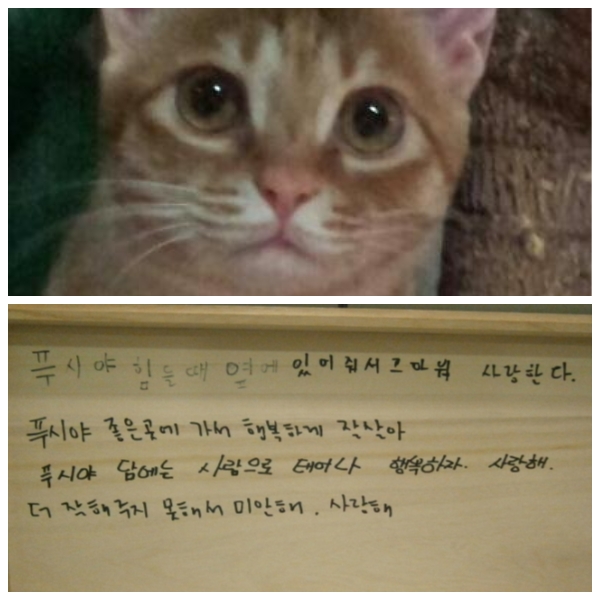 푸시야 힘들때 옆에 있어줘서 고마워 사랑한다.
푸시야 좋은곳에 가서 행복하게 잘살아
푸시야 담에는 사람으로 태어나 행복하자. 사랑해.
더 잘해주지 못해서 미안해. 사랑해